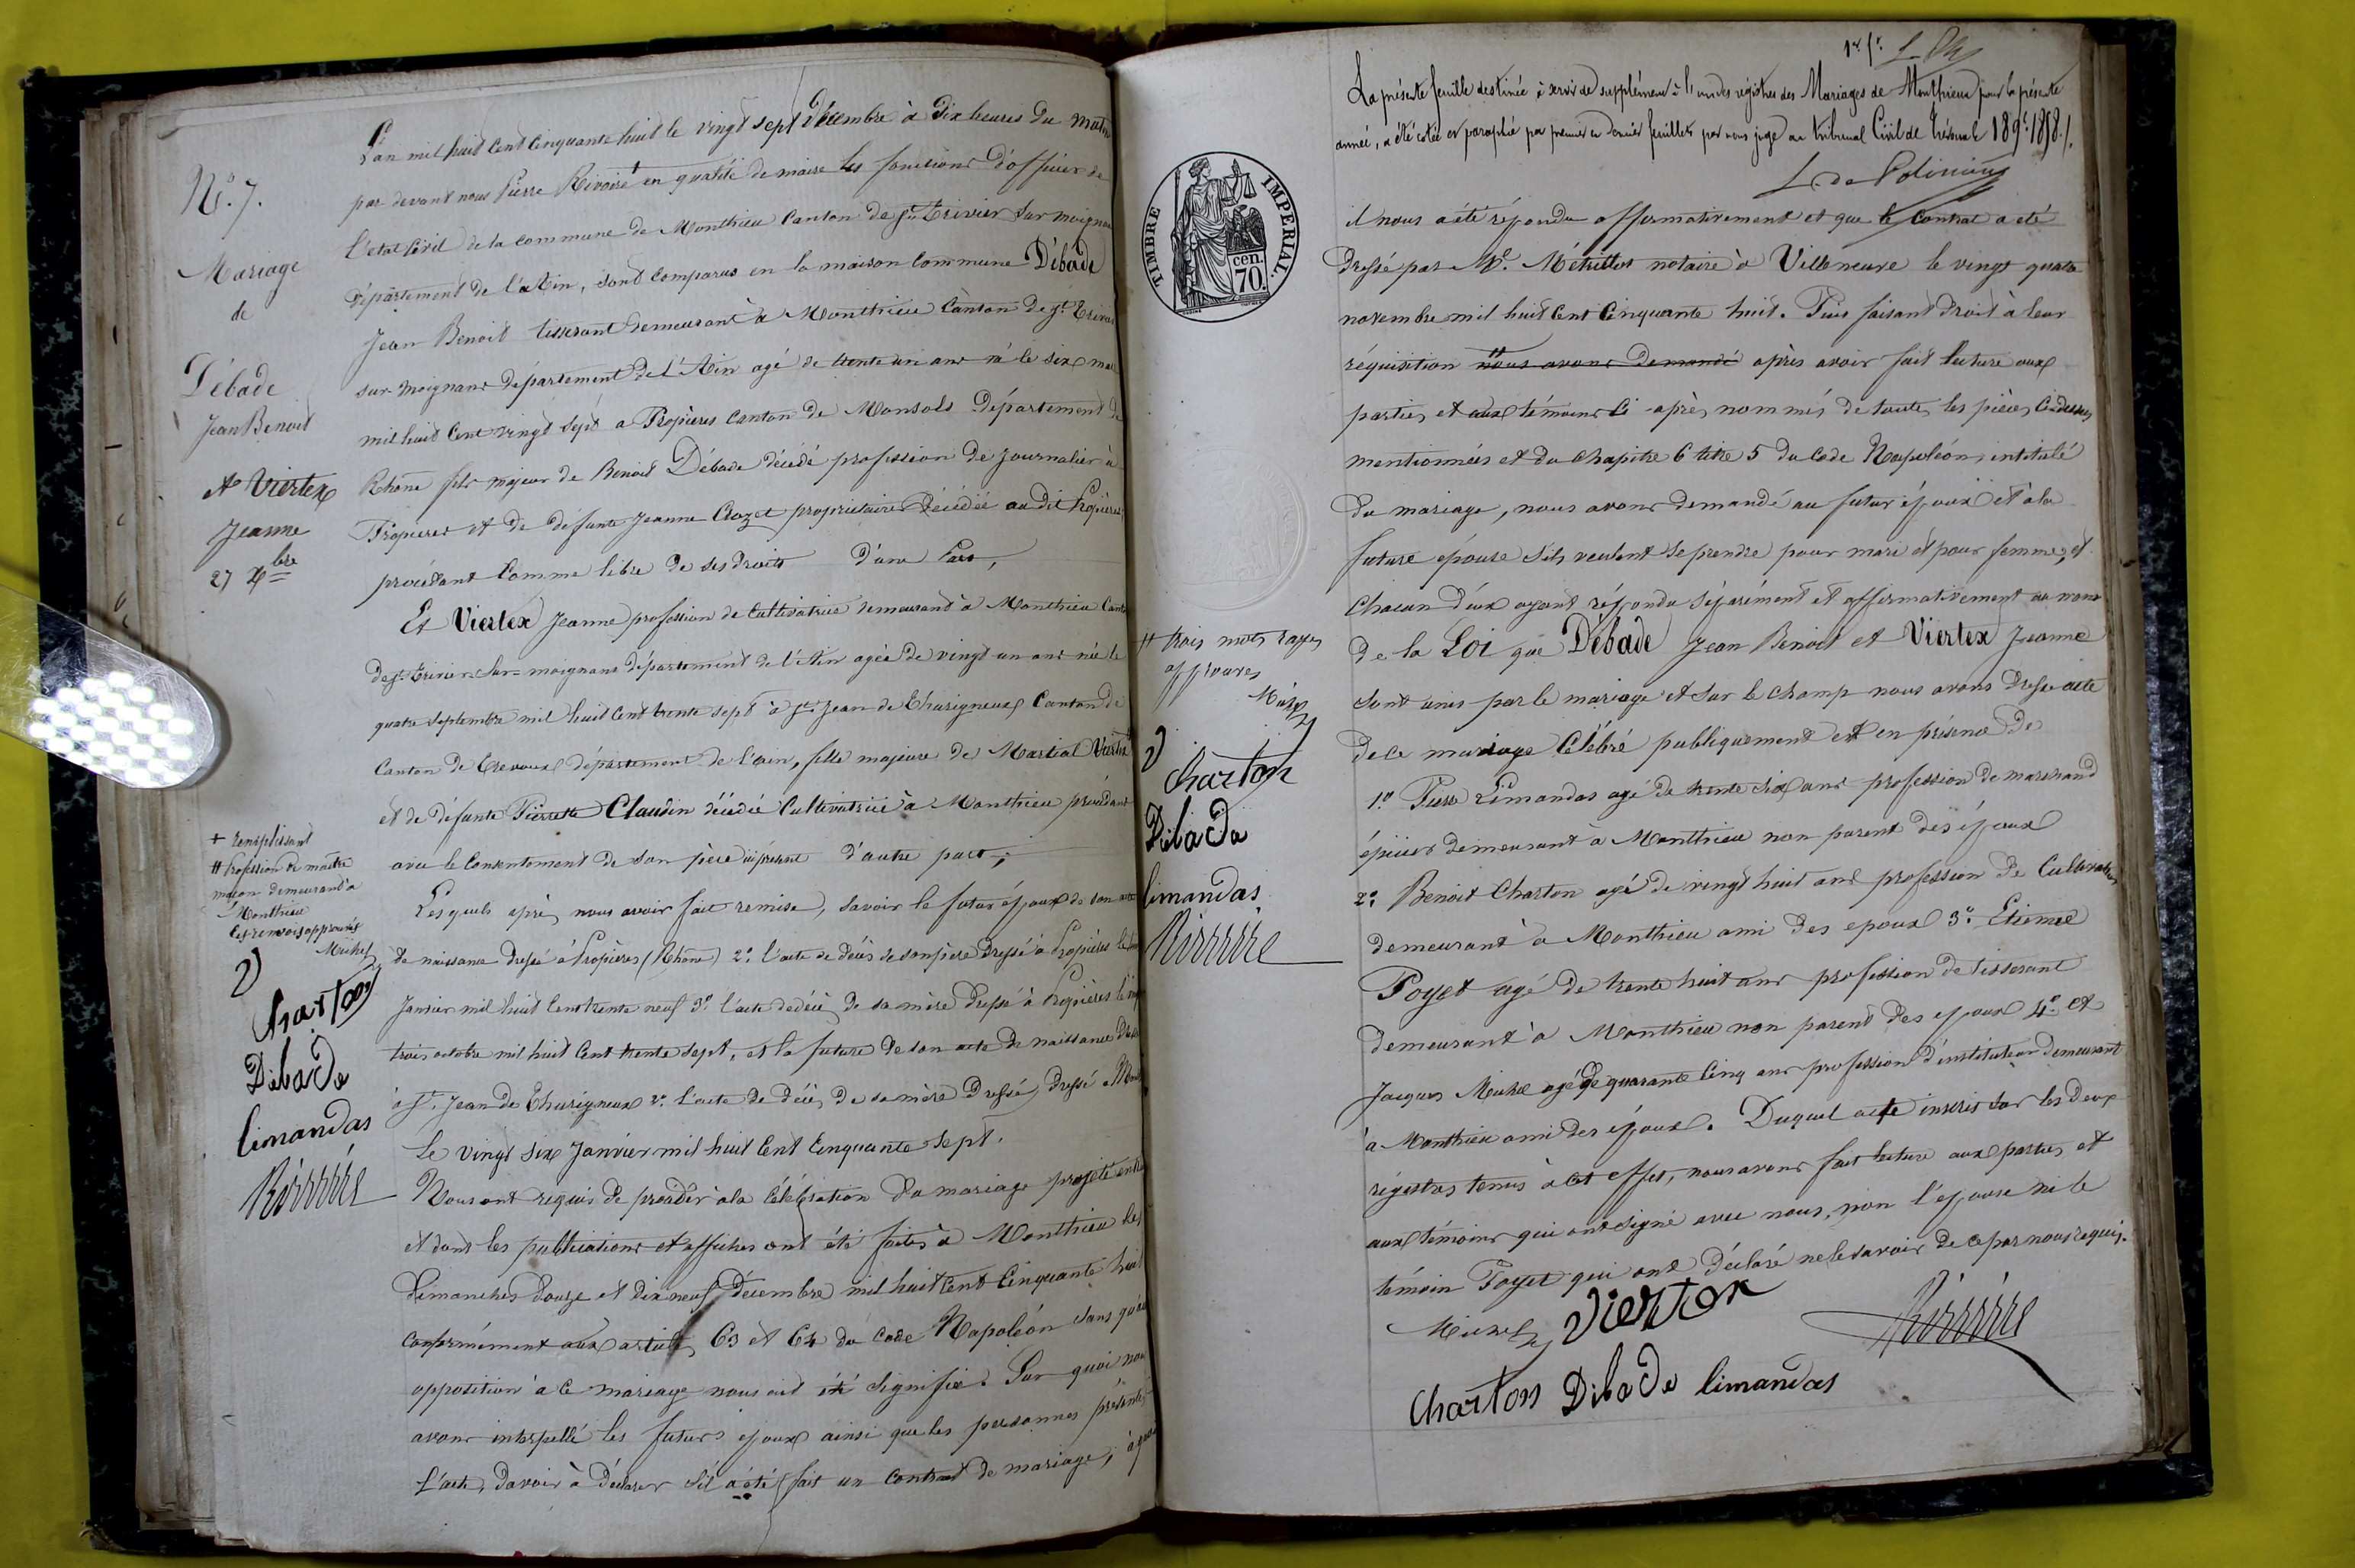 N°. 7.
Mariage
de
Débade
Jean Benoit
et Viertex
Jeanne
27 Xbre
L'an mil huit cent cinquante huit le vingt sept Décembre à dix heures du matin
par devant nous Pierre Rivoire + en qualité de maire les fonctions d'officier de
l'état civil de la commune de Monthieu canton de St. Trivier sur moignans
département de l'Ain, sont comparus en la maison commune Débade
Jean Benoit tisserant demeurant à Monthieu canton de St. Trivier
sur moignans département de l'Ain agé de trente un ans né le six mai
mil huit cent vingt sept a Propières canton de Monsols Département du
Rhône fils majeur de Benoit Débade décédé profession de journalier à
Propieres et de défunte Jeanne Crozet propriétaire décédée audit Propières
procédant comme libre de ses droits d'une part,
Et Viertex Jeanne profession de cultivatrice demeurant à Monthieu canton
de St. Trivier-sur-moignans département de l'Ain agée de vingt un ans née le
quatre septembre mil huit cent trente sept à St. Jean de Thurigneux Canton de
Canton de Trevoux département de l'ain, fille majeure de Martial Viertex
et de défunte Pierrette Claudin décédée cultivatrice à Monthieu procédant
avec le consentement de son père ici présent d'autre part;
Lesquels après nous avoir fait remise, savoir le futur époux de son acte
de naissance dressé à Propières (Rhône) 2° l'acte de décès de son père dressé à Propières le
Janvier mil huit cent trente neuf 3° l'acte de décès de sa mère dressé à Propières le vingt
trois octobre mil huit cent trente sept, et la future de son acte de naissance dressé
à St. Jean de Thurigneux 2° l'acte de décès de sa mère Dressé, dressé a
le vingt six Janvier mil huit cent cinquante sept.
Nous ont requis de procéder à la célébration du mariage projeté entre
et dont les publications et affiches ont été faites à Monthieu les
dimanches douze et dix neuf décembre mil huit cent cinquante huit
conformément aux articles 63 et 64 du code Napoléon sans qu'
opposition à ce mariage nous ait été signifiée. Sur quoi nous
avons interpellé les futurs époux ainsi que les personnes présentes
l'acte, davoir à déclarer s'il a été fait un contrat de mariage, à quoi
+ remplissant
# Profession de maître
maçon demeurant à
Monthieu
les renvois approuvés
Michel
V
Charton
Débade
limandas
Rivoire
1er fr.
La présente feuille destinée à servir de supplément à l'un des régistres des Mariages de Monthieux pour la présente
année, a été cotée et paraphée par premier et dernier feuillets par nous juge au tribunal Civil de Trévoux le 1858.
TIMBRE IMPERIAL.
cen.
70.
il nous a été répondu affirmativement et que le contrat a été
dressé par Me. notaire à Villeneuve le vingt quatre
novembre mil huit cent cinquante huit. Puis faisant droit à leur
réquisition nous avons demandé après avoir fait lecture aux
parties et aux témoins ci-après nommés de toutes les pièces ci-dessus
mentionnées et du chapitre 6 titre 5 du code Napoléon, intitulé
du mariage, nous avons demandé au futur époux et à la
future épouse s'ils veulent se prendre pour mari et pour femme, et
chacun d'eux ayant répondu séparément et affirmativement au nom
de la Loi que Débade Jean Benoit et Viertex Jeanne
sont unis par le mariage et sur le champ nous avons dressé acte
de ce mariage célébré publiquement et en présence de
1° Pierre Limandas agé de trente six ans profession de marchand
épicier demeurant à Monthieu non parent des époux
2° Benoit Charton agé de vingt huit ans profession de Cultivateur
demeurant à Monthieu ami des epoux 3° Etienne
Poyet agé de trente huit ans profession de tisserant
demeurant à Monthieu non parent des epoux 4° et
Jacques Michel agé de quarante cinq ans profession d'instituteur demeurant
à Monthieu ami des époux. Duquel acte inscrit sur les deux
régistres tenus à cet effet, nous avons fait lecture aux parties et
aux témoins qui ont signé avec nous, non l'epouse ni le
témoin Poyet qui ont déclaré ne le savoir de ce par nous requis.
Michel Vierton Rivoire
Charton Débade limandas
# trois mots rayés
approuvés
Michel
V
Charton
Débade
limandas
Rivoire